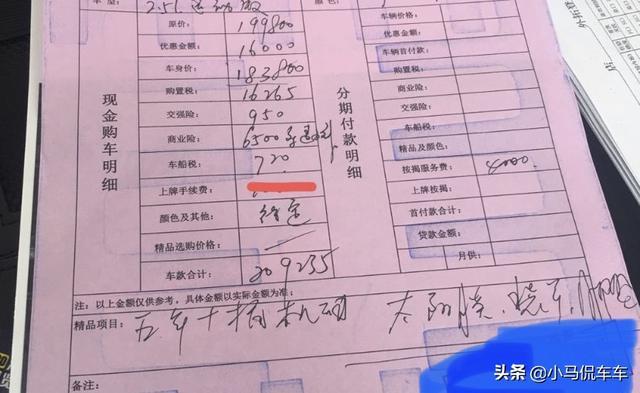 车型: 2.5L 运动版 颜色:
原价: 199800 车辆价格:
优惠金额: 16000 车辆首付款:
车身价: 183800 商业险:
购置税: 16265 购置税:
交强险: 950 交强险:
商业险: 6500 车船税:
车船税: 720 精品及颜色:
上牌手续费: 按揭服务费: 4000.
颜色及其他: 上牌按揭:
精品选购价格: 首付款合计:
贷款金额:
车款合计: 209235 月供:
现金购车明细
分期付款明细
注:以上金额仅供参考,具体金额以实际金额为准:
精品项目: 五年十 机油 太阳膜.
备注:
头条 @小马侃车车